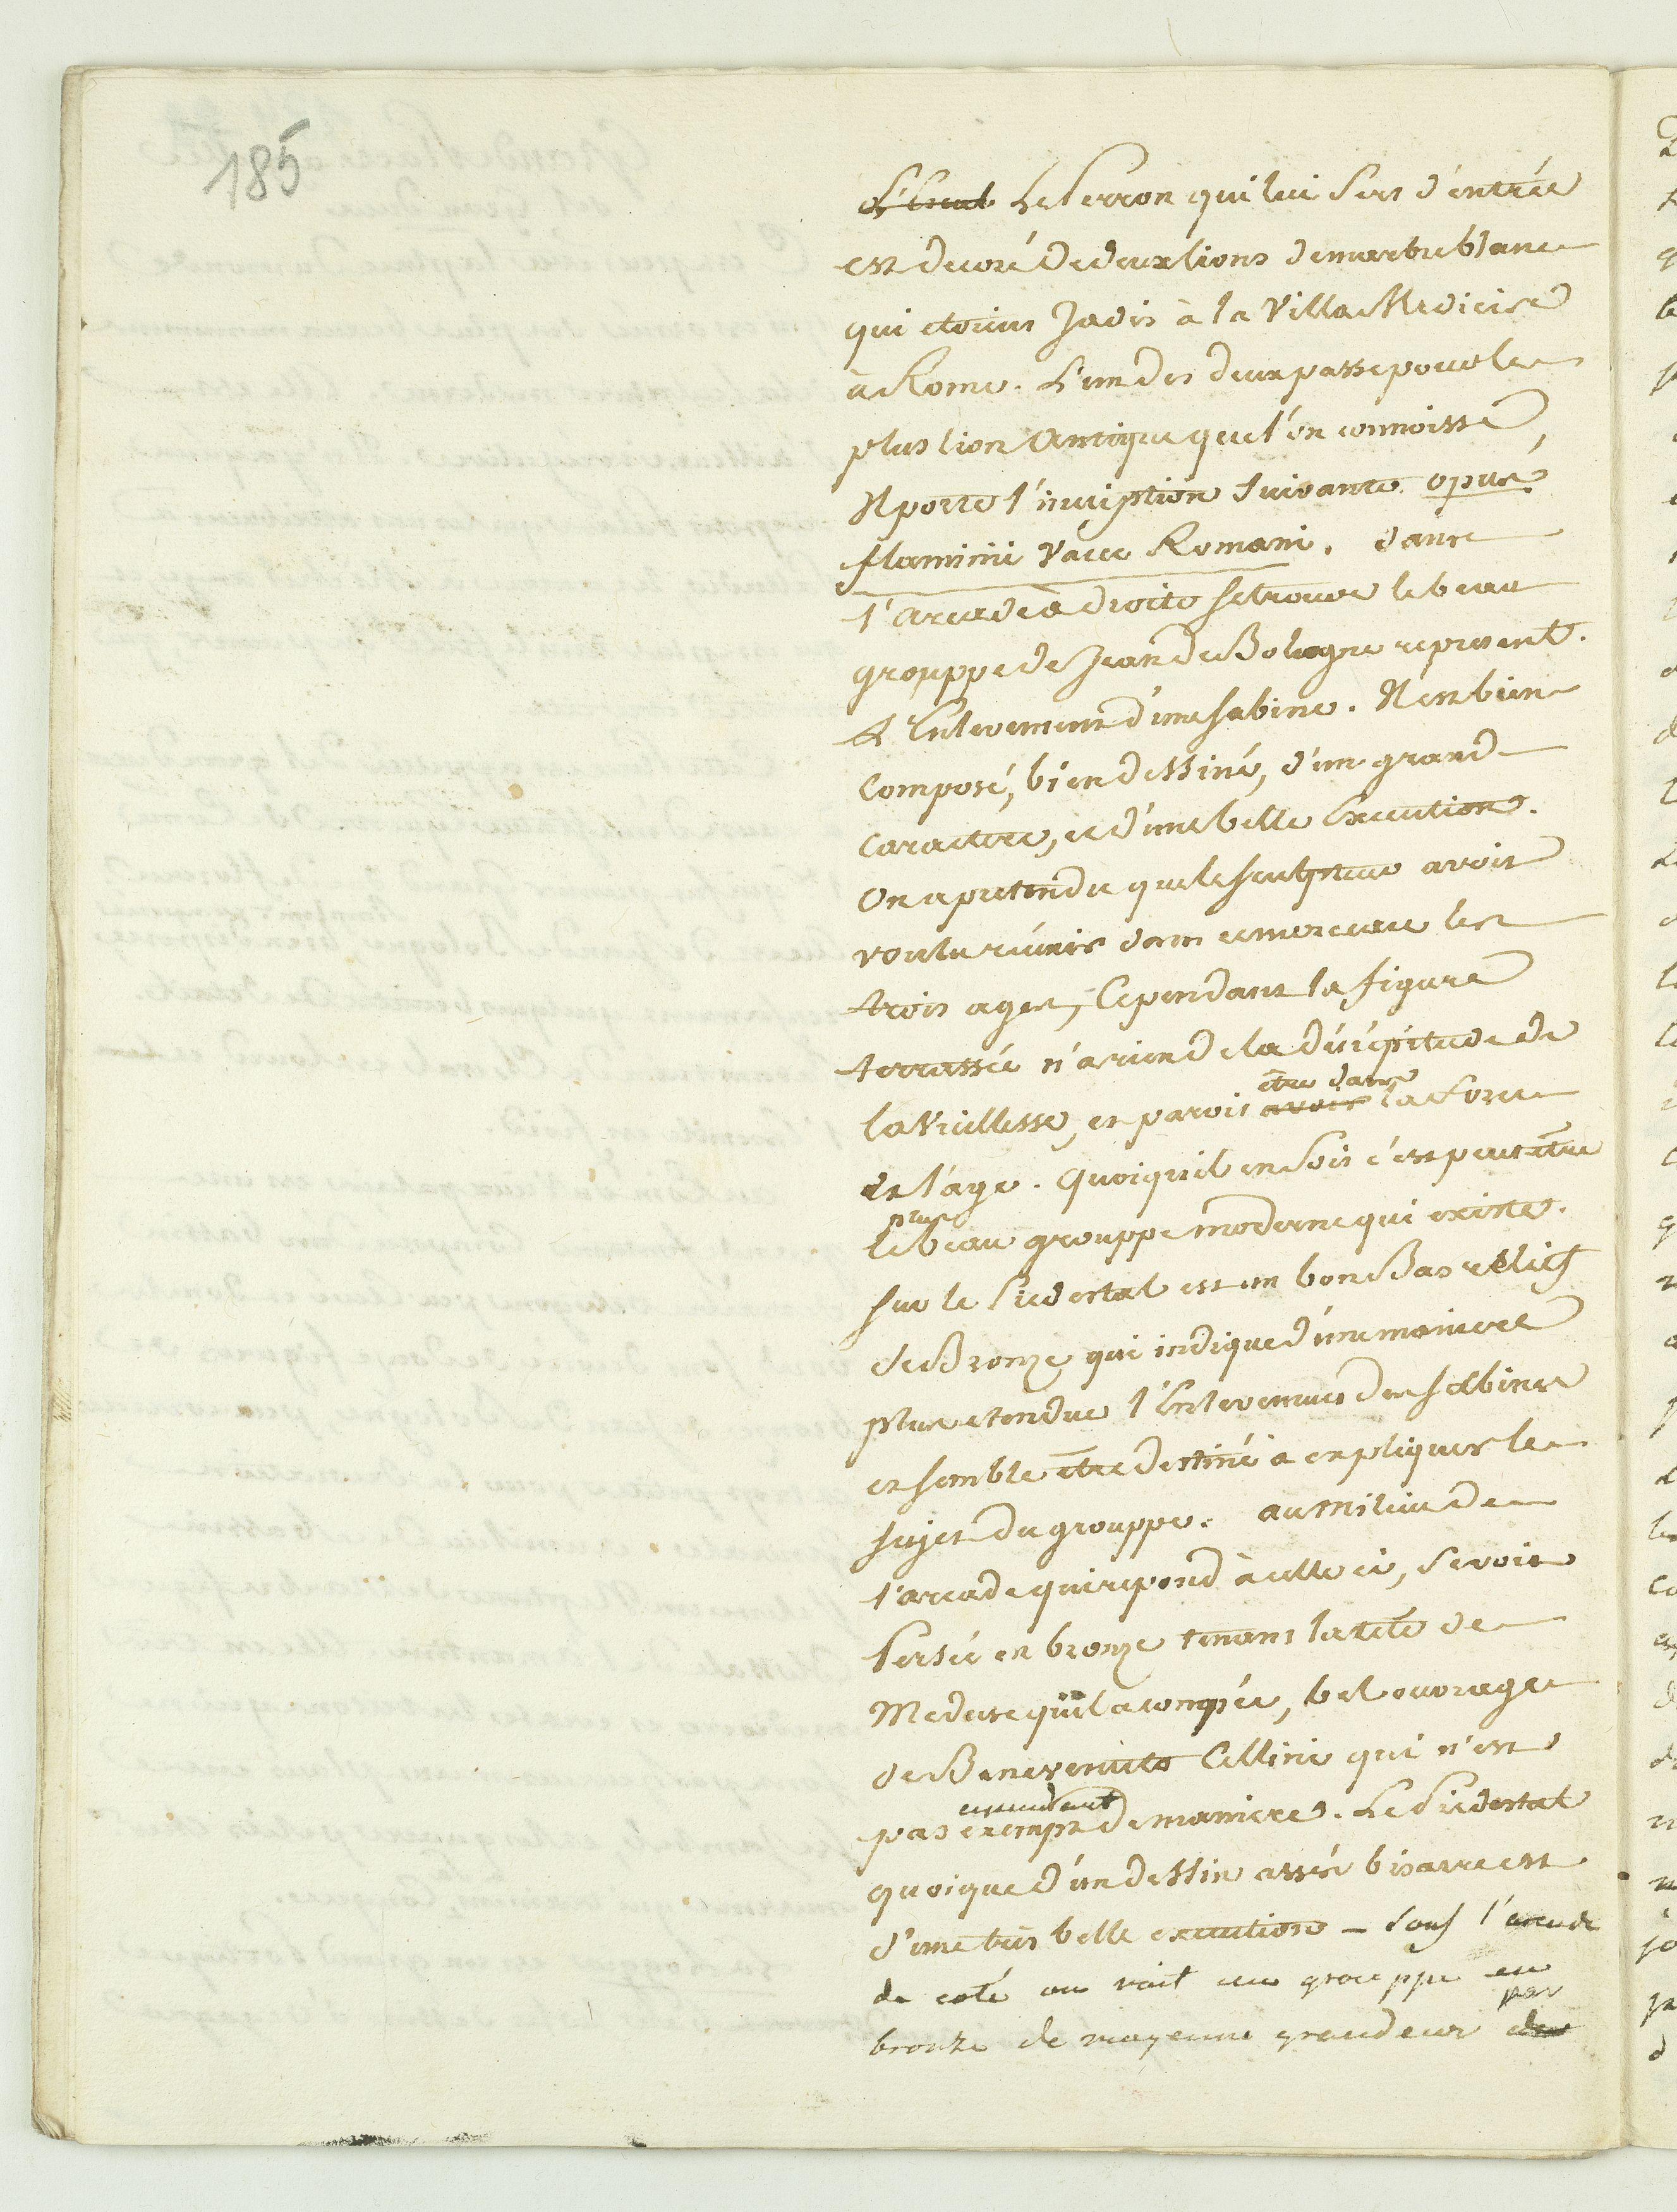 185
Le Perron qui lui sert d'entrée
est decoré de deux lions de marbre blanc
qui etoient Jadis à la Villa Medicis
à Rome. L'un des deux passe pour le
plus lion Antique que l'on connoisse,
Il porte l'inscription suivante opus
flaminii Vacce Romani. dans
l'arcade à droite se trouve le beau
grouppe de Jean de Bologne represent.
L'Enlevement d'une sabine. Il est bien
composé, bien dessiné, d'un grand
caractere, et d'une belle Execution.
On a pretendu que le sculpteur avoit
voulu réunir dans ce morceau les
trois ages, Cependant la figure
terrassée n'a rien de la décrépitude de
être dans
la Vieillesse, et paroit avoir la force
de l'age. Quoiqu'il en soit c'est peut etre
plus
le beau grouppe moderne qui existe.
sur le Piedestal est un bon Bas relief
de Bronze qui indique d'une maniere
plus etendue l'Enlevement des sabines
et semble etre destiné à expliquer le
sujet du grouppe. au Milieu de
l'arcade qui repond à celle ci, se voit
Persée en bronze tenant la tête de
Meduse qu'il a coupée, bel ouvrage
de Benevenuto Cellini qui n'est
cependant
pas exempt de maniere. Le Piedestal
quoique d'un dessin assés bisarre est
d'une très belle execution _ sous l'arcade
de coté on voit un grouppe en
par
bronze de moyenne grandeur de